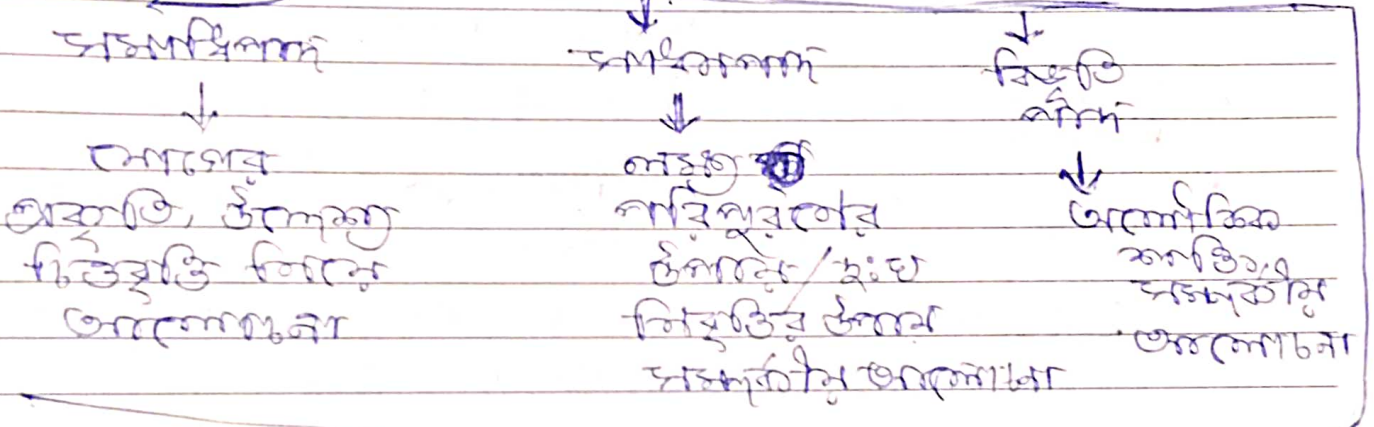 সমাধিপাদ
↓
যোগের
প্রকৃতি, উদ্দেশ্য
চিত্তবৃত্তি নিয়ে
আলোচনা
সাধনপাদ
↓
লক্ষ্য
পরিপূরণের
উপায় / দুঃখ
নিবৃত্তির উপায়
সম্পর্কীয় আলোচনা
বিভূতি
পাদ
↓
অলৌকিক
শক্তি
সম্পর্কীয়
আলোচনা